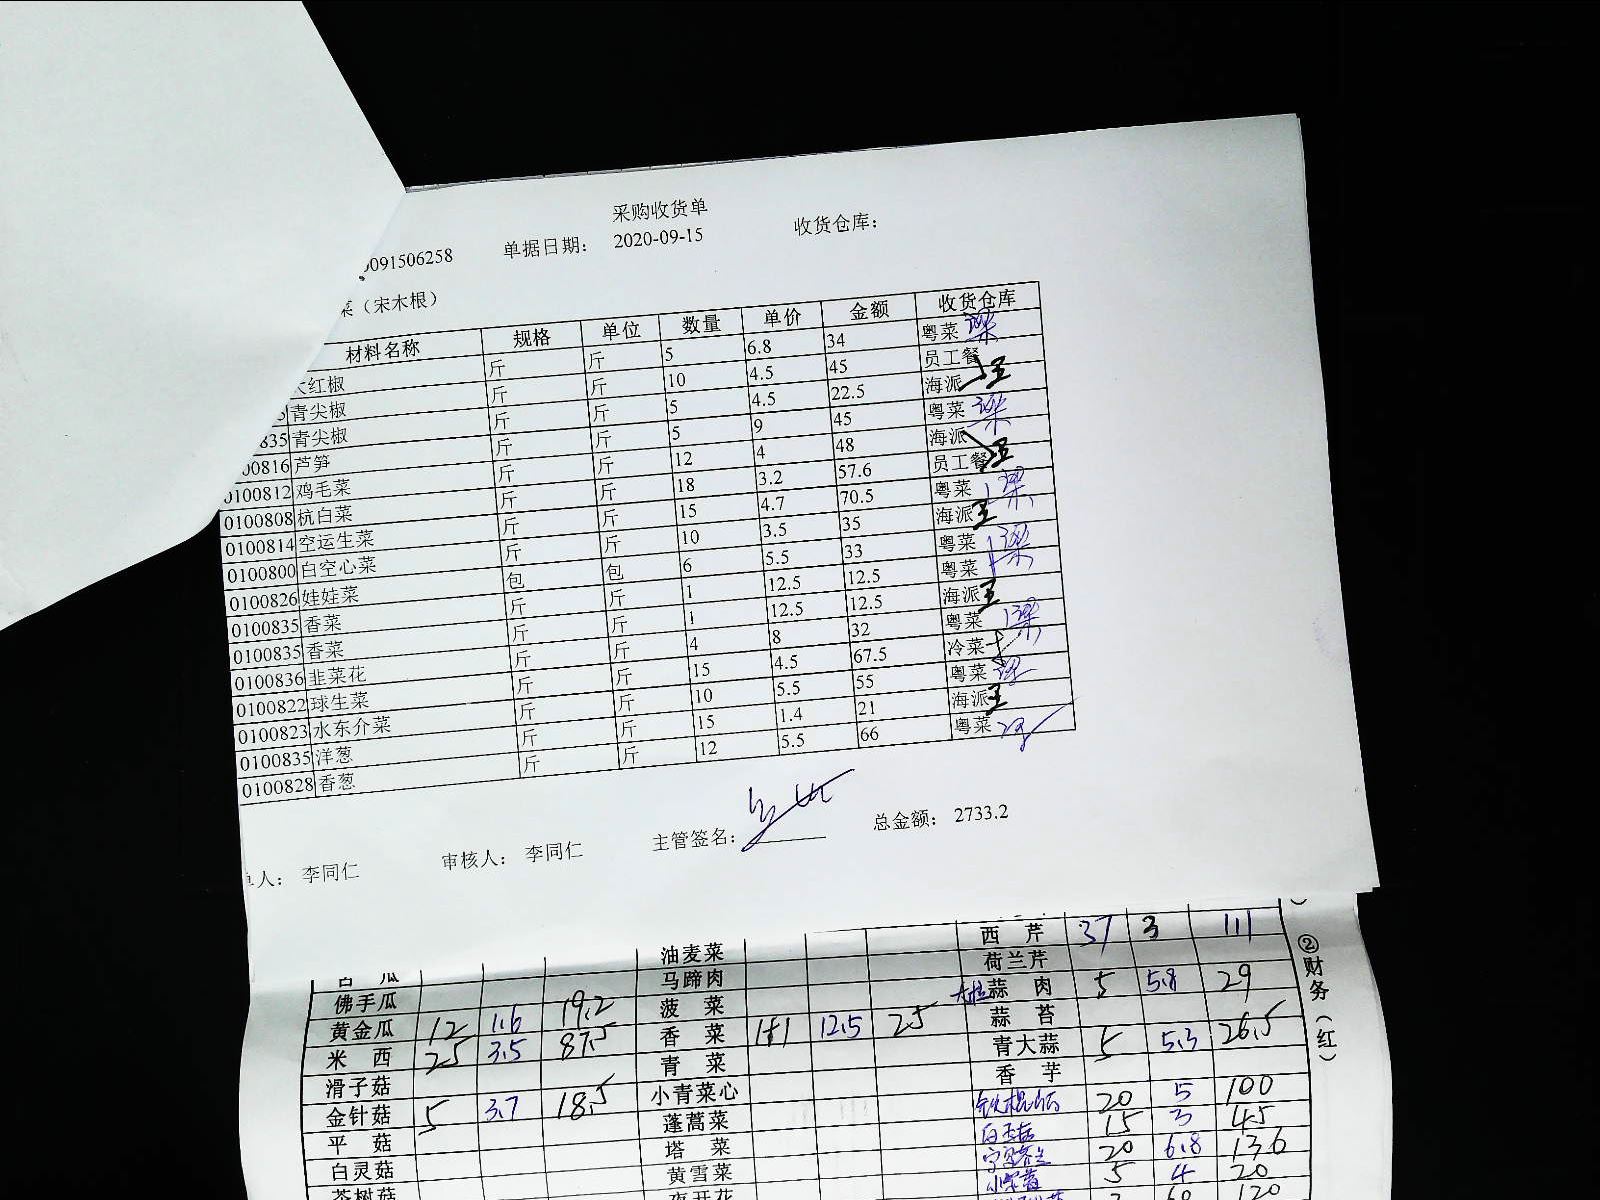 采购收货单
091506258 单据日期: 2020-09-15 收货仓库:
菜（宋木根）
材料名称 规格 单位 数量 单价 金额 收货仓库
红椒 斤 斤 5 6.8 34 粤菜 梁
青尖椒 斤 斤 10 4.5 45 员工餐
835 青尖椒 斤 斤 5 4.5 22.5 海派 王
00816 芦笋 斤 斤 5 9 45 粤菜 梁
0100812 鸡毛菜 斤 斤 12 4 48 海派
0100808 杭白菜 斤 斤 18 3.2 57.6 员工餐 王
0100814 空运生菜 斤 斤 15 4.7 70.5 粤菜 梁
0100800 白空心菜 斤 斤 10 3.5 35 海派 王
0100826 娃娃菜 包 包 6 5.5 33 粤菜 梁
0100835 香菜 斤 斤 1 12.5 12.5 粤菜
0100835 香菜 斤 斤 1 12.5 12.5 海派 王
0100836 韭菜花 斤 斤 4 8 32 粤菜 梁
0100822 球生菜 斤 斤 15 4.5 67.5 冷菜
0100823 水东介菜 斤 斤 10 5.5 55 粤菜
0100835 洋葱 斤 斤 15 1.4 21 海派 王
0100828 香葱 斤 斤 12 5.5 66 粤菜
单人: 李同仁 审核人: 李同仁 主管签名: 总金额: 2733.2
油麦菜 西芹 37 3 111
瓜 马蹄肉 荷兰芹
佛手瓜 菠菜 蒜肉 5 5.8 29
黄金瓜 12 1.6 19.2 香菜 1+1 12.5 25 蒜苔
米西 25 3.5 87.5 青菜 青大蒜 5 5.3 26.5
滑子菇 小青菜心 香芋
金针菇 5 3.7 18.5 蓬蒿菜 20 5 100
平菇 塔菜 15 3 45
白灵菇 黄雪菜 20 6.8 136
茶树菇 夜开花 5 4 20
60 120
②财务（红）